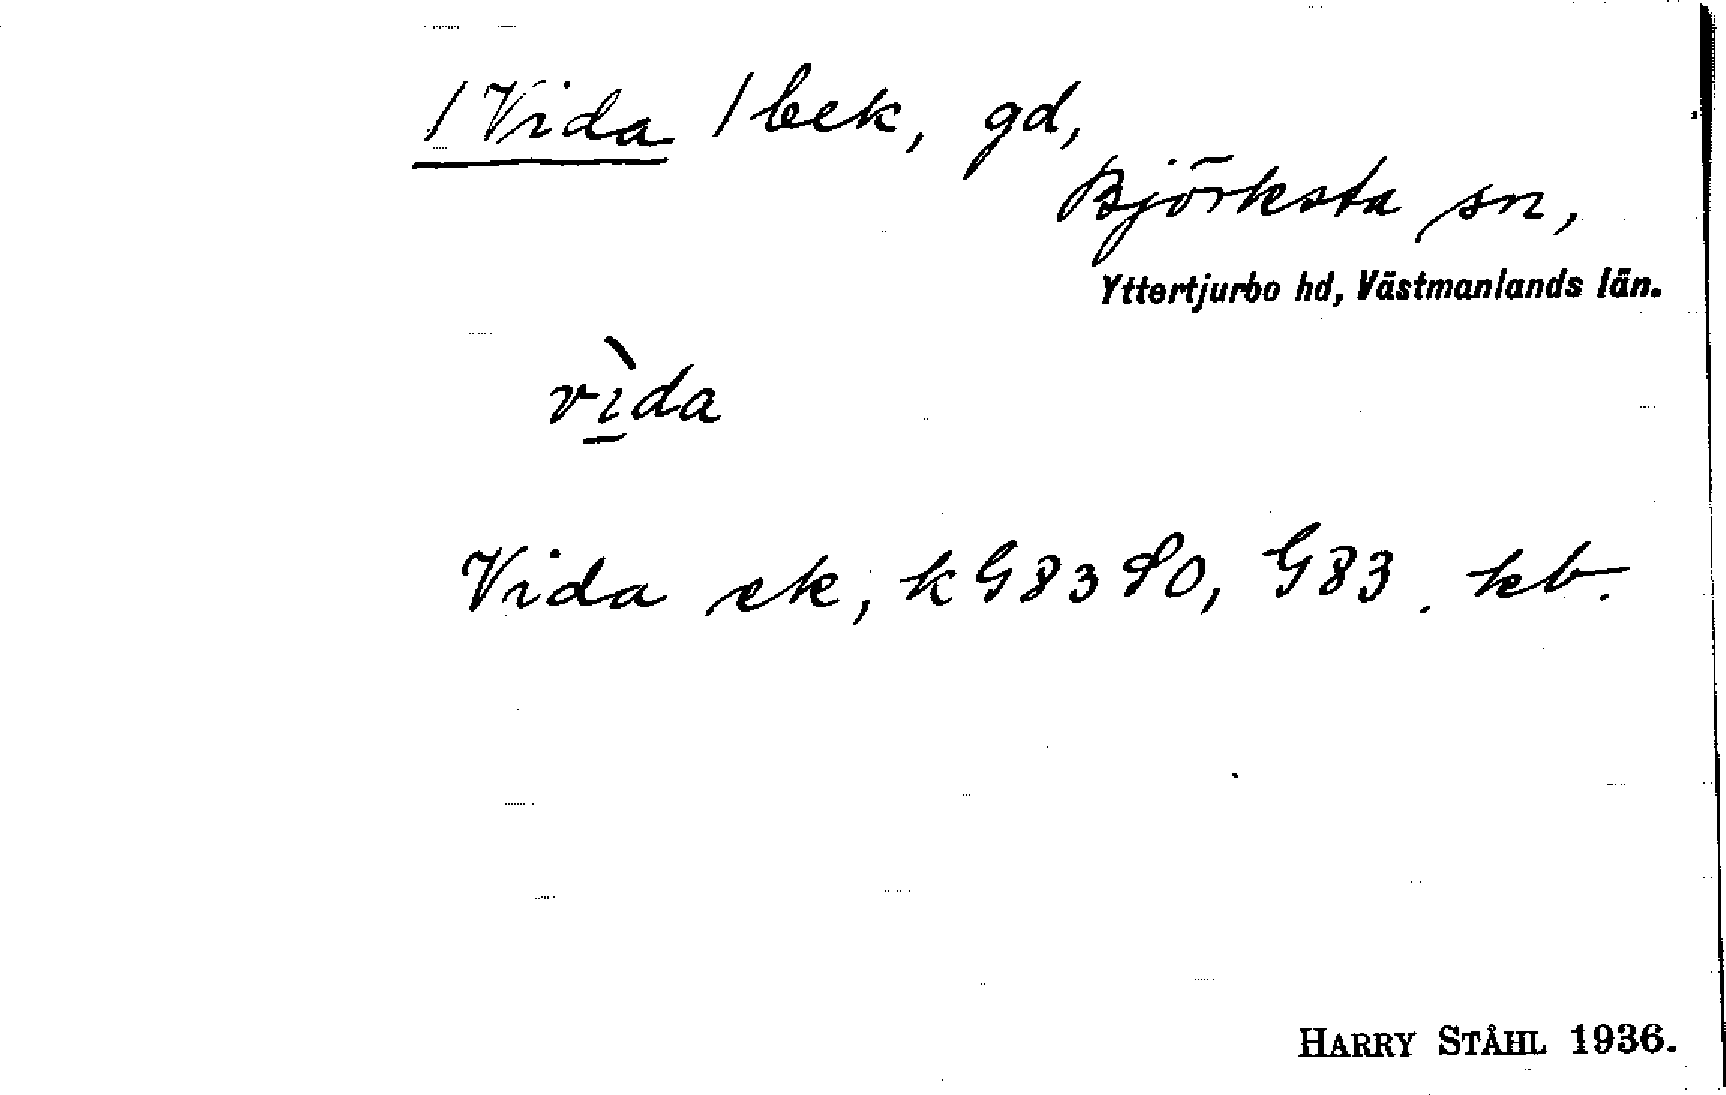 / Vida / bek, gd,
Björksta sn,
Yttertjurbo hd, Västmanlands län.
vìda
Vida ek, k G83 SO, G83. kb.
HARRY STÅHL 1936.